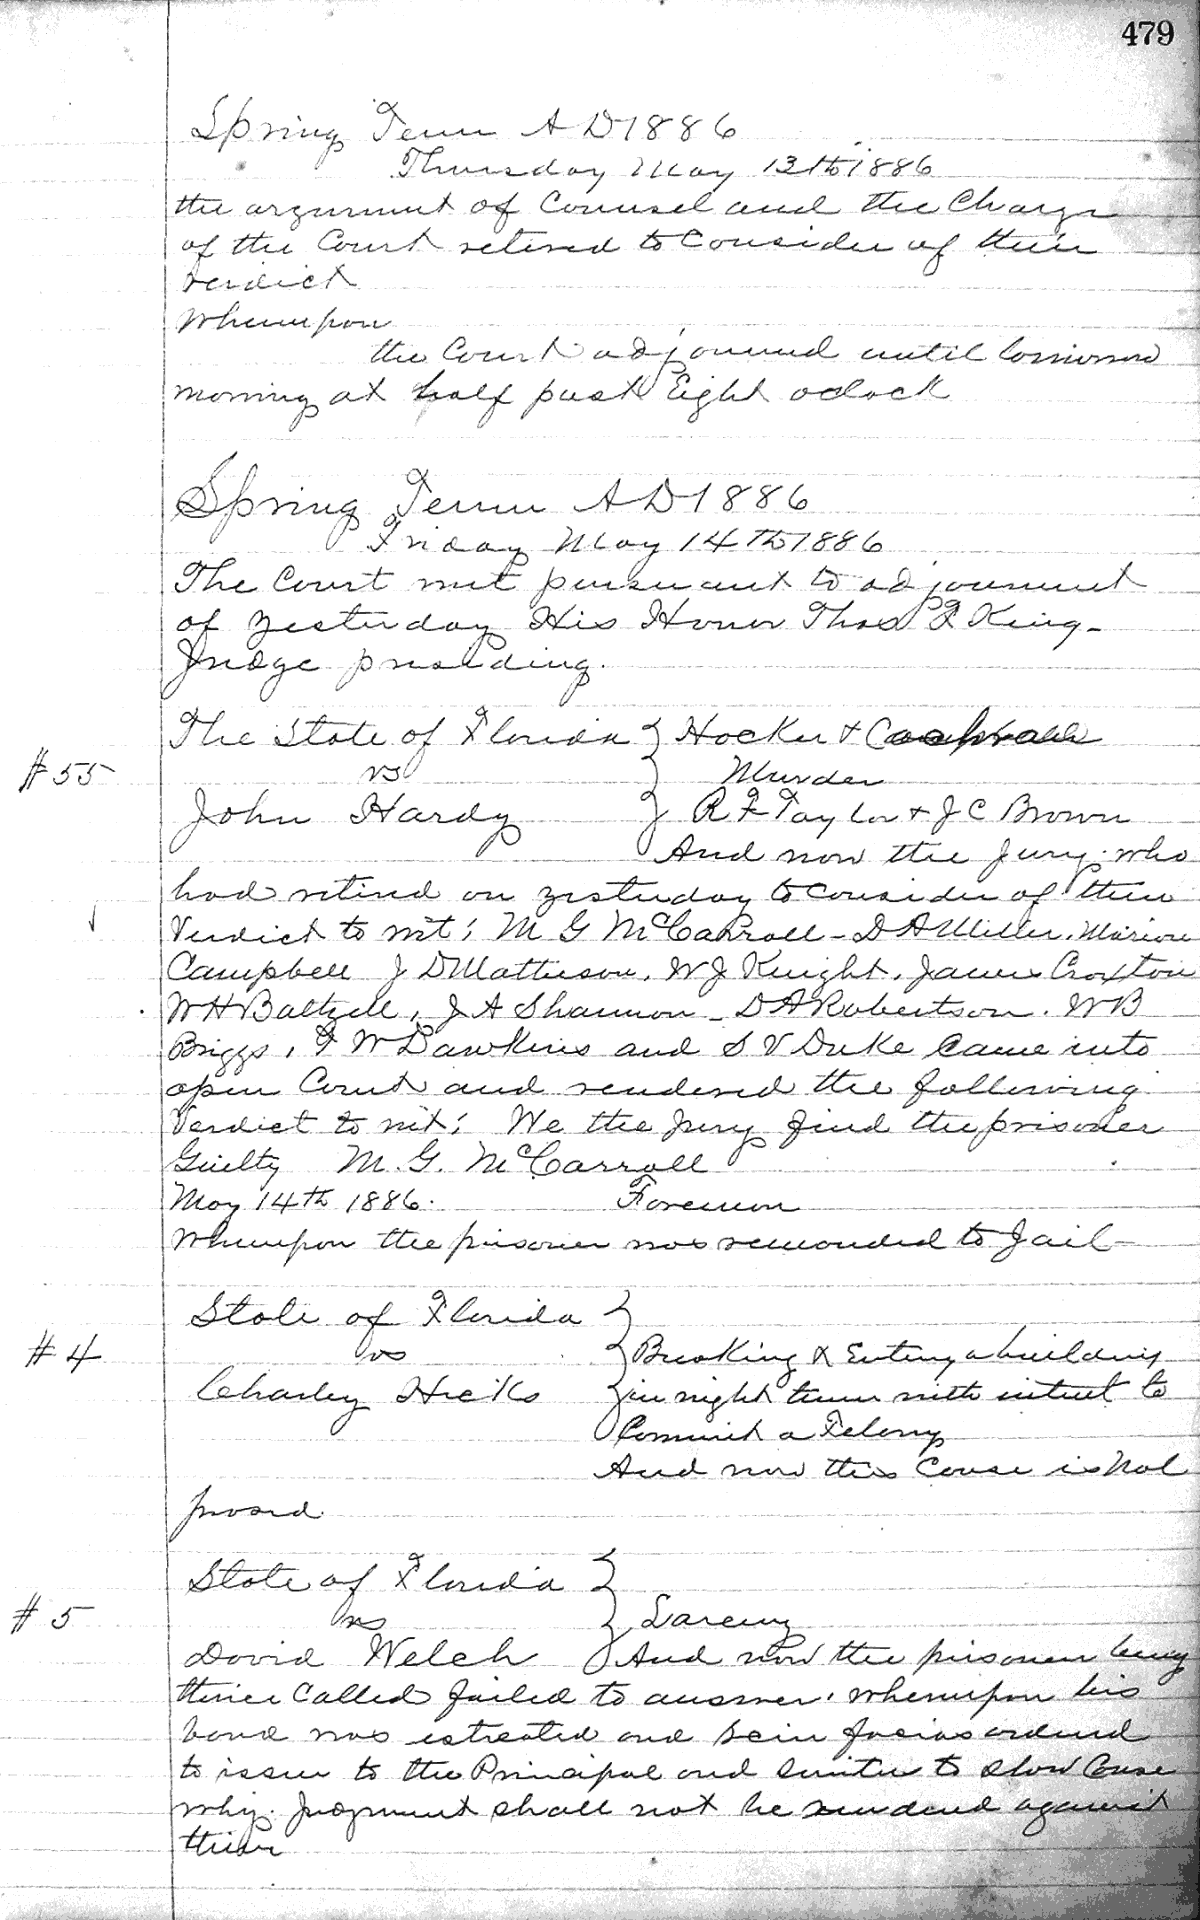 479
Spring Term A D 1886
Thursday May 13th 1886
the argument of Counsel and the Charge
of the Court retired to Consider of their
verdict
Whereupon
the Court adjourned until tomorrow
morning at half past Eight oclock
Spring Term A D 1886
Friday May 14th 1886
The Court met pursuant to adjournment
of yesterday His Honor Thos F King
Judge presiding.
The State of Florida } Hocker +
#55 vs } Murder
John Hardy } R F Taylor + J C Brown
And now the Jury who
had retired on yesterday to consider of their
Verdict to wit; M G McCarroll - D A Miller, Marion
Campbell J D Matheson, W J Knight, James Croxton
W H Baltzell, J A Shannon - D A Robertson. W B
Briggs, F W Dawkins and S V Duke Came into
open Court and rendered the following
Verdict to wit; We the Jury find the prisoner
Guilty M. G. McCarroll
May 14th 1886. Foreman
Whereupon the prisoner was remanded to Jail -
State of Florida }
#4 vs } Breaking & Entering a building
Charley Hicks } in night time with intent to
Commit a Felony
And now this Cause is Nol
prosed.
State of Florida }
#5 vs } Larceny
David Welch } And now the prisoner being
thrice Called failed to answer, whereupon his
bond was estreated and Scire facias ordered
to issue to the Principal and sureties to show Cause
why Judgment shall not be rendered against
them